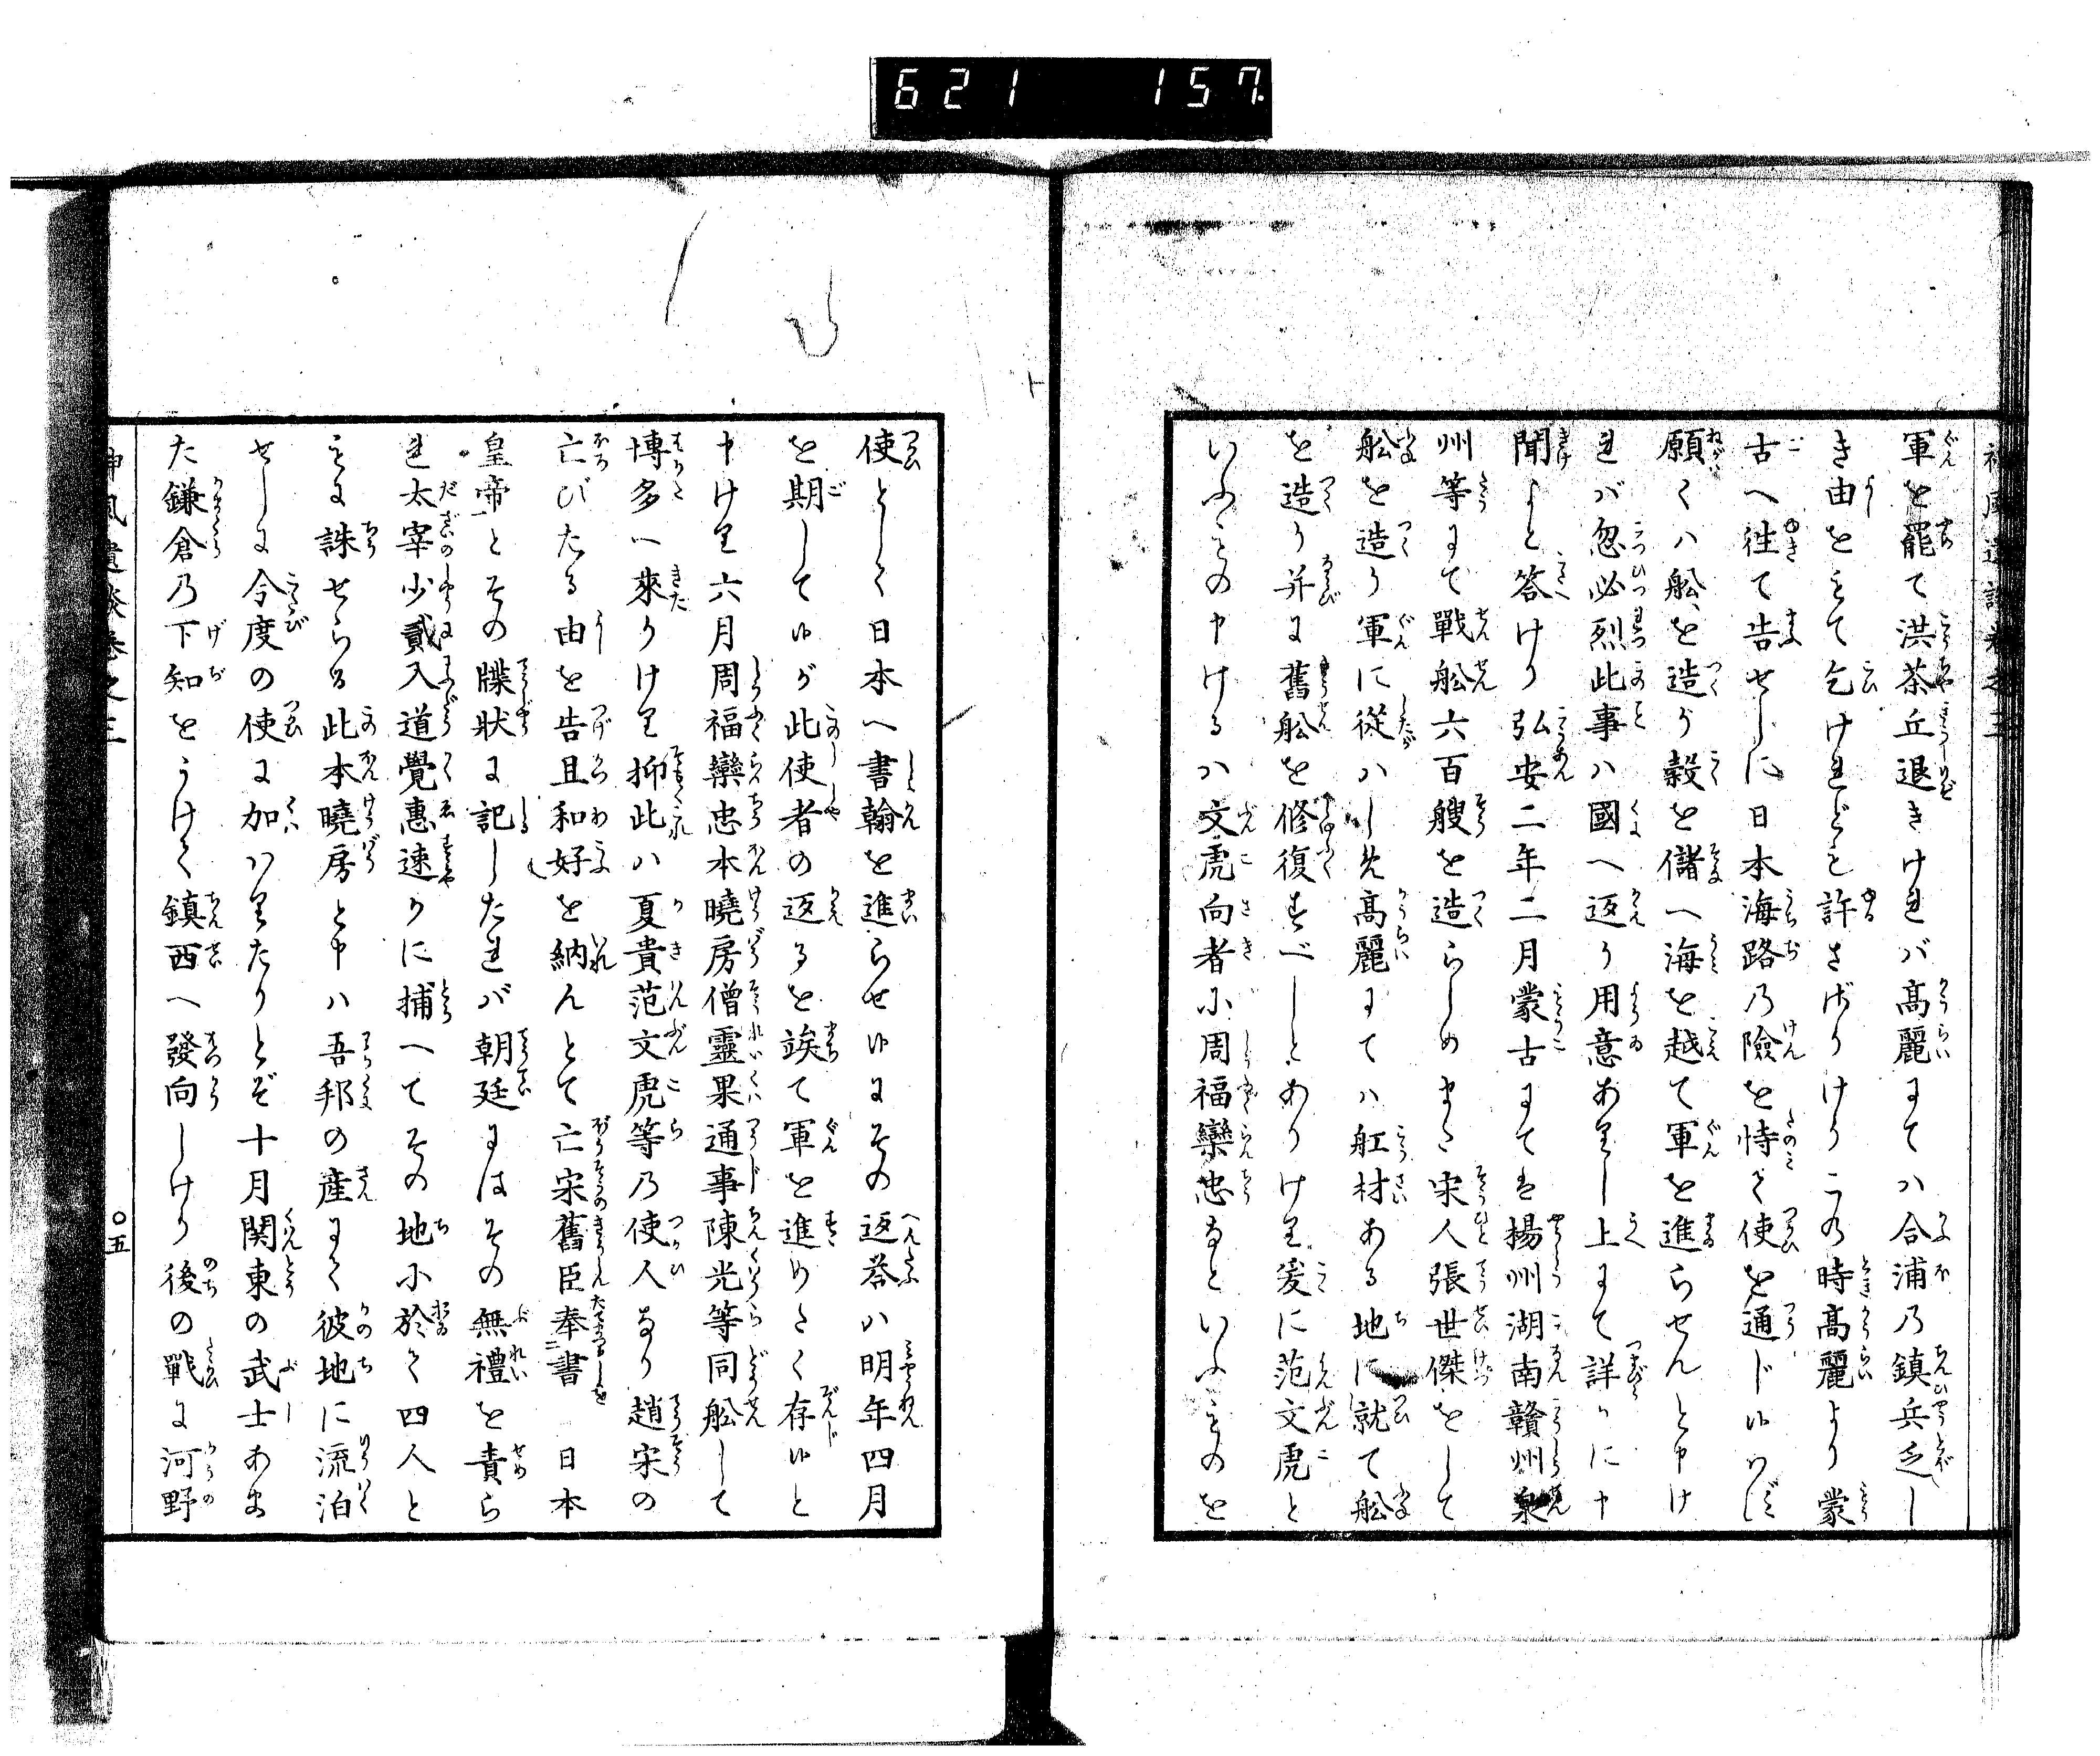 621 157.
軍を罷て洪茶丘退きけれバ高麗にてハ合浦乃鎮兵乏し
き由をもて乞けれども許さずりけりこの時高麗より蒙
古へ往て告せしに日本海路乃險を恃て使を通じ候ハず
願くハ舩を造り穀を儲へ海を越て軍を進らせんと申け
れバ忽必烈此事ハ國へ返り用意ありし上にて詳かに申
聞よと答けり弘安二年二月蒙古にても揚州湖南贛州泉
州等にて戰舩六百艘を造らしめまた宋人張世傑をして
舩を造り軍に從ハしめ高麗にてハ舡材ある地に就て舩
を造り并に舊舩を修復すべしとありけり爰に范文虎と
いふもの申けるハ文虎向者に周福欒忠なといふものを
使として日本へ書翰を進らせ候にその返荅ハ明年四月
を期して候が此使者の返るを竢て軍を進めたく存候と
申けり六月周福欒忠本曉房僧靈果通事陳光等同舩して
博多へ來りけり抑此ハ夏貴范文虎等乃使人なり趙宋の
亡びたる由を告且和好を納んとて亡宋舊臣奉書 日本
皇帝とその牒狀に記したれバ朝廷にはその無禮を責ら
れ太宰少貳入道覺惠速かに捕へてその地に於て四人と
もに誅せらる此本曉房と申ハ吾邦の産にて彼地に流泊
せしに今度の使に加ハりたりとぞ十月関東の武士あま
た鎌倉乃下知をうけて鎮西へ發向しけり後の戰に河野
神風遺談卷之三 〇五